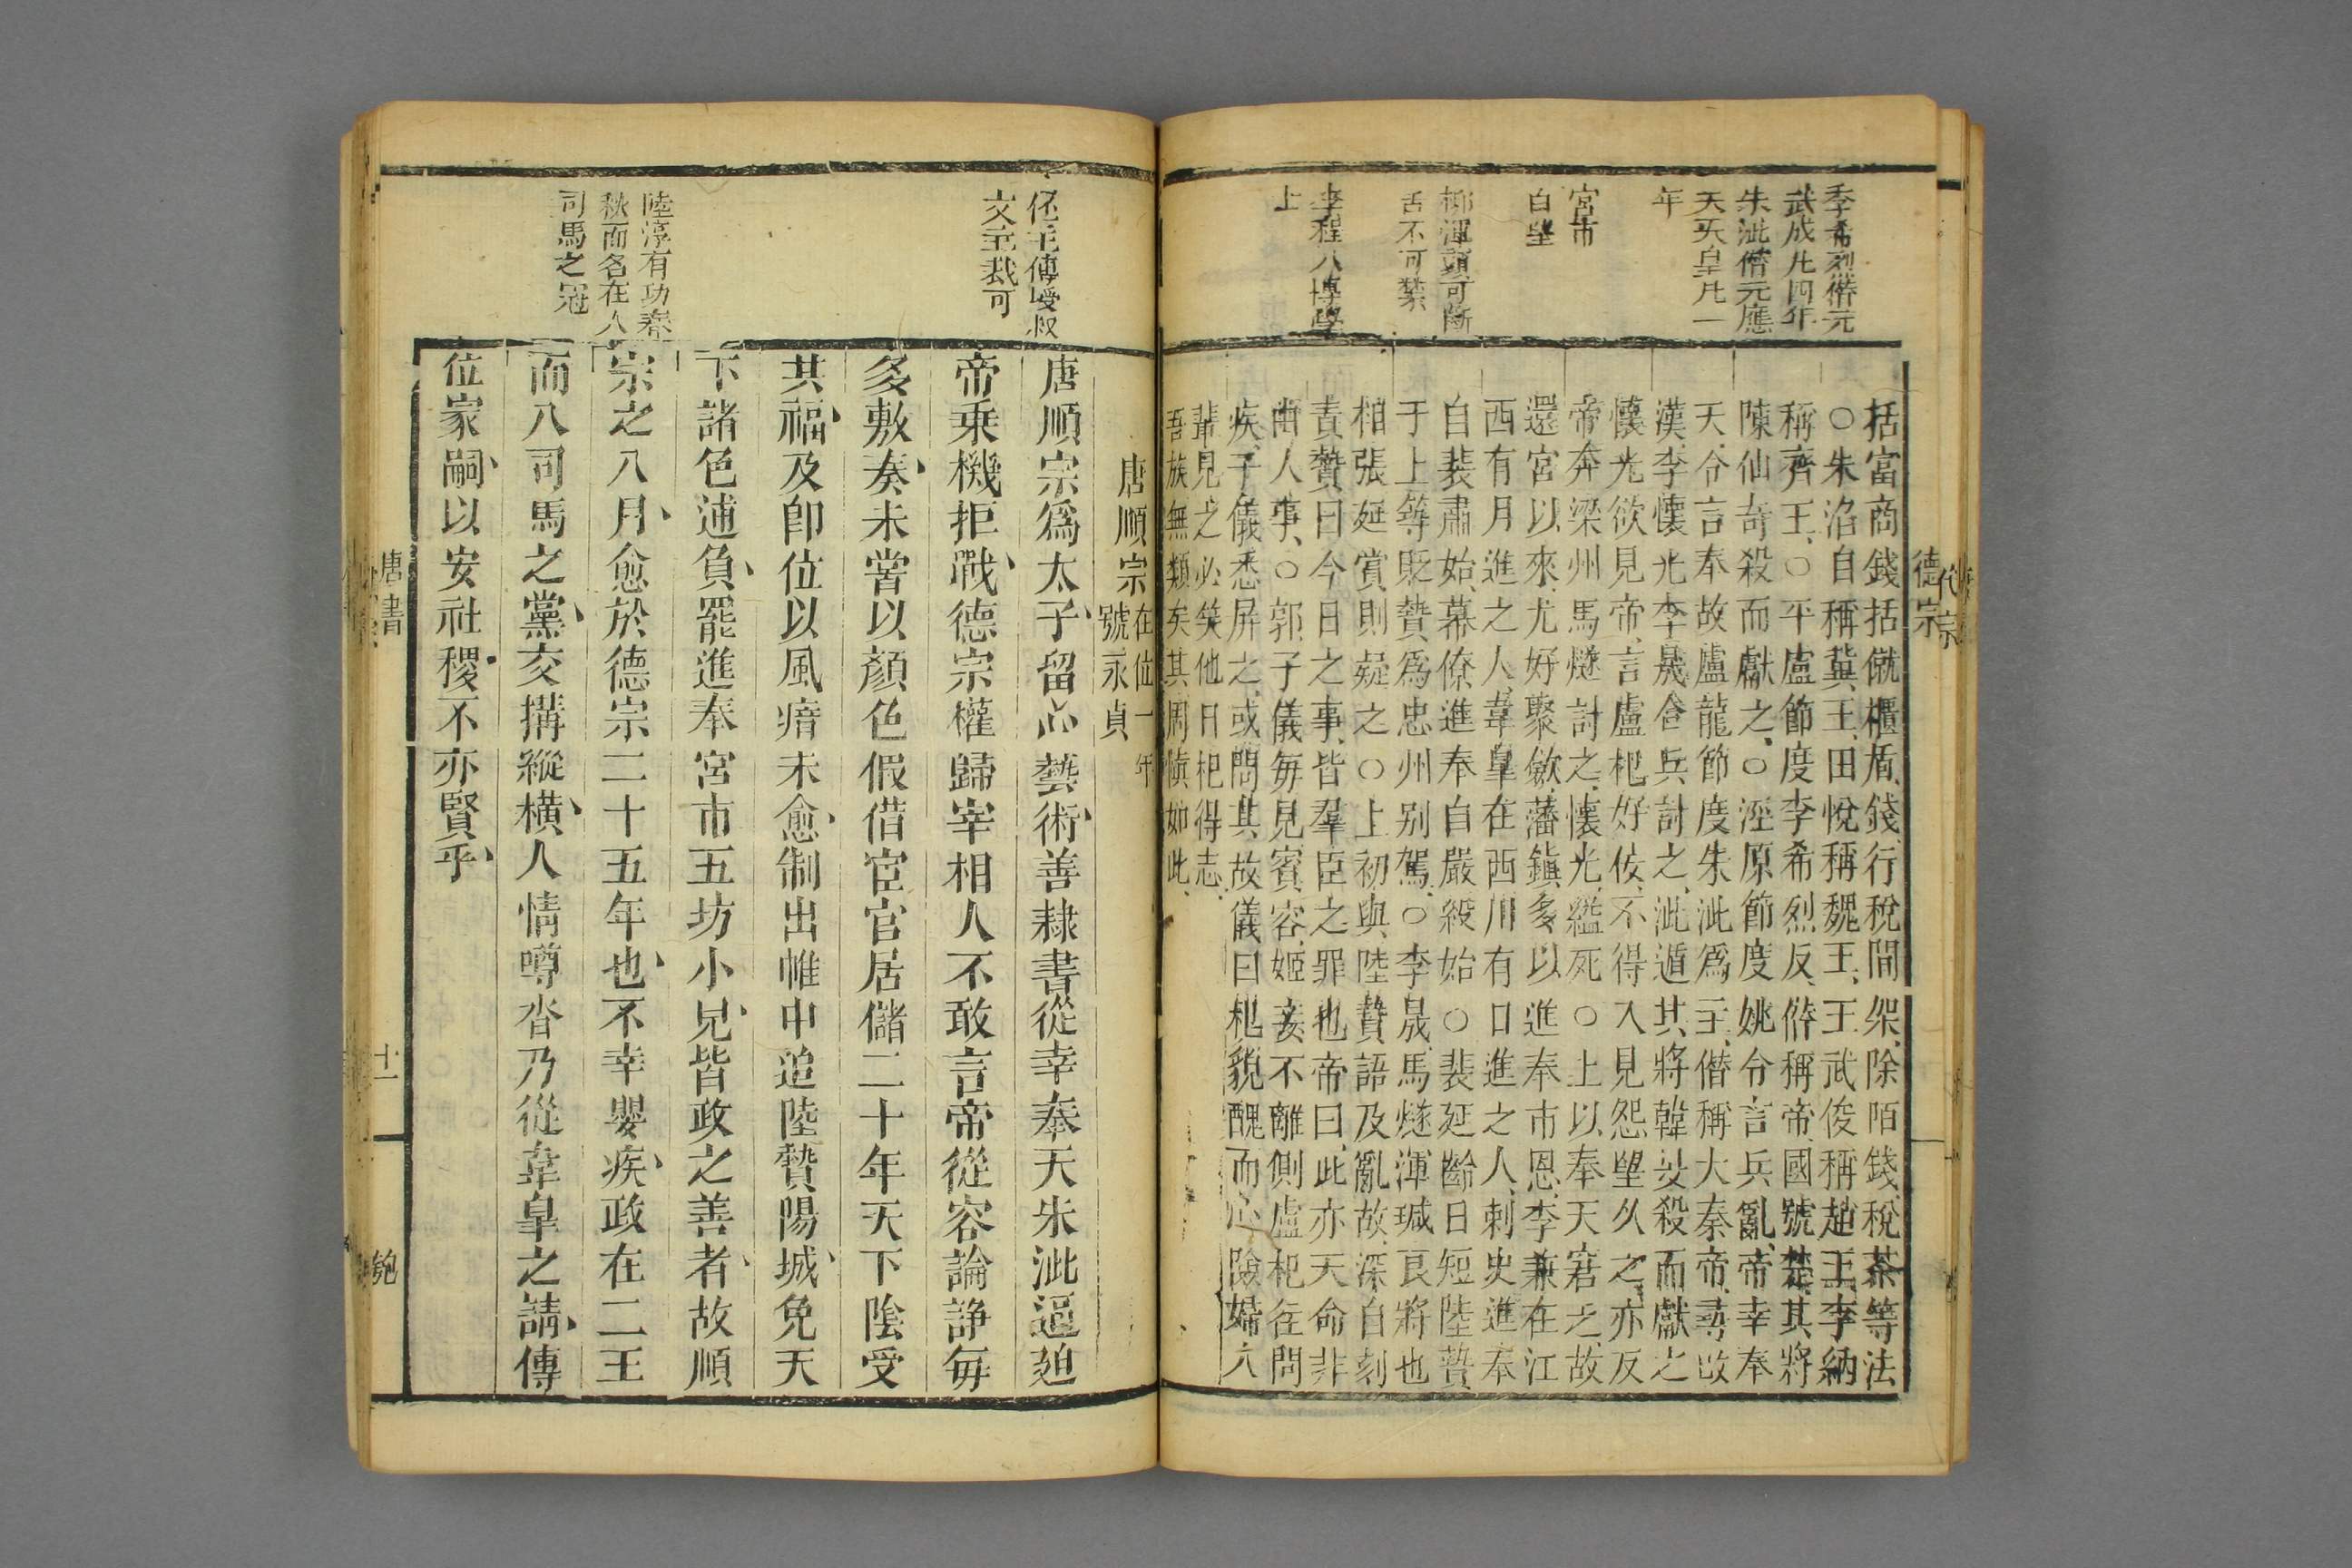 德宗
李希烈僭元
武成凡四年
朱泚僭元應
天天皇凡一
年
宮市
白望
柳渾頭可斷
舌不可禁
李程八博學
上
括富商錢括僦櫃盾錢行稅間架除陌錢稅茶等法
○朱滔自稱冀王田悅稱魏王王武俊稱趙王李納
稱齊王○平盧節度李希烈反僭稱帝國號楚其將
陳仙奇殺而獻之○涇原節度姚令言兵亂帝幸奉
天令言奉故盧龍節度朱泚爲主僭稱大秦帝尋改
漢李懷光李晟合兵討之泚遁其將韓旻殺而獻之
懷光欲見帝言盧杞好佞不得入見怨望久之亦反
帝奔梁州馬燧討之懷光縊死○上以奉天窘乏故
還宮以來尤好聚斂藩鎮多以進奉市恩李兼在江
西有月進之人韋臯在西川有日進之人刺史進奉
自裴肅始幕僚進奉自嚴綬始○裴延齡日短陸贄
于上等貶贄爲忠州别駕○李晟馬燧渾瑊良將也
相張延賞則疑之○上初與陸贄語及亂故深自刻
責贄曰今日之事皆羣臣之罪也帝曰此亦天命非
由人事○郭子儀每見賓容姬妾不離側盧杞徃問
疾子儀悉屏之或問其故儀曰杞貌醜而心險婦人
輩見之必笑他日杞得志
吾族無類矣其周愼如此
唐順宗 在位一年
號永貞
伾主傳授叔
文主裁可
陸淳有功春
秋而名在八
司馬之冠
唐順宗爲太子留心藝術善隷書從幸奉天朱泚逼廹
帝乗機拒戰德宗權歸宰相人不敢言帝從容論諍每
多敷奏未嘗以顏色假借宦官居儲二十年天下陰受
其福及卽位以風瘖未愈制出帷中追陸贄陽城免天
下諸色逋負罷進奉宮市五坊小兒皆政之善者故順
宗之八月愈於德宗二十五年也不幸嬰疾政在二王
而八司馬之黨交搆縱横人情噂沓乃從韋臯之請傳
位家嗣以安社稷不亦賢乎
唐書
十一